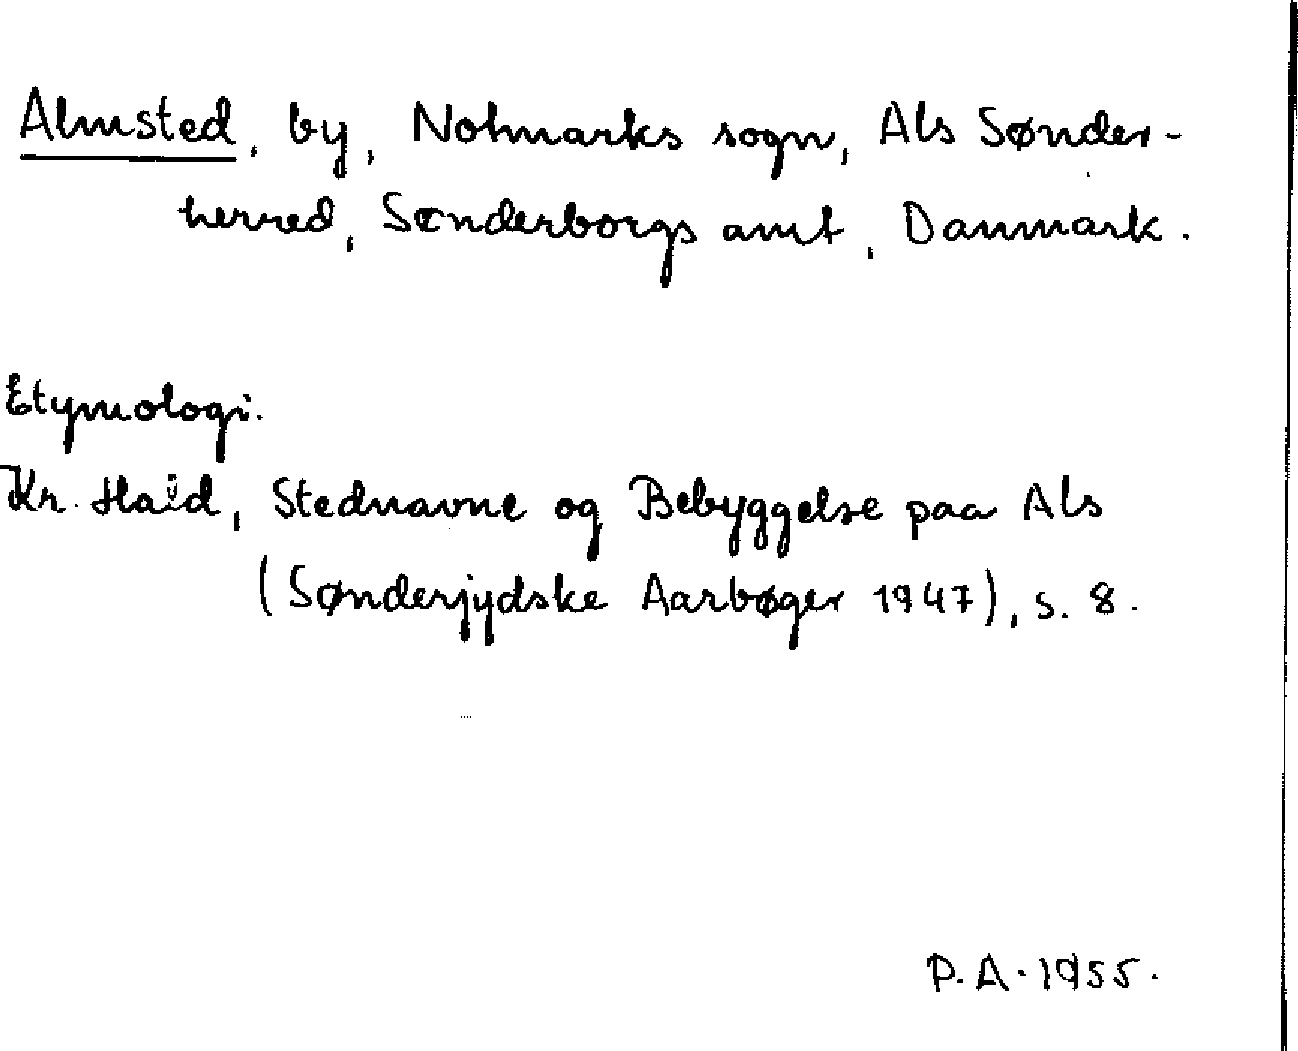 Almsted, by, Notmarks sogn, Als Sønder-
herred, Sønderborgs amt, Danmark.
Etymologi.
Kr. Hald, Stednavne og Bebyggelse paa Als
(Sønderjydske Aarbøger 1947), s. 8.
P.A. 1955.